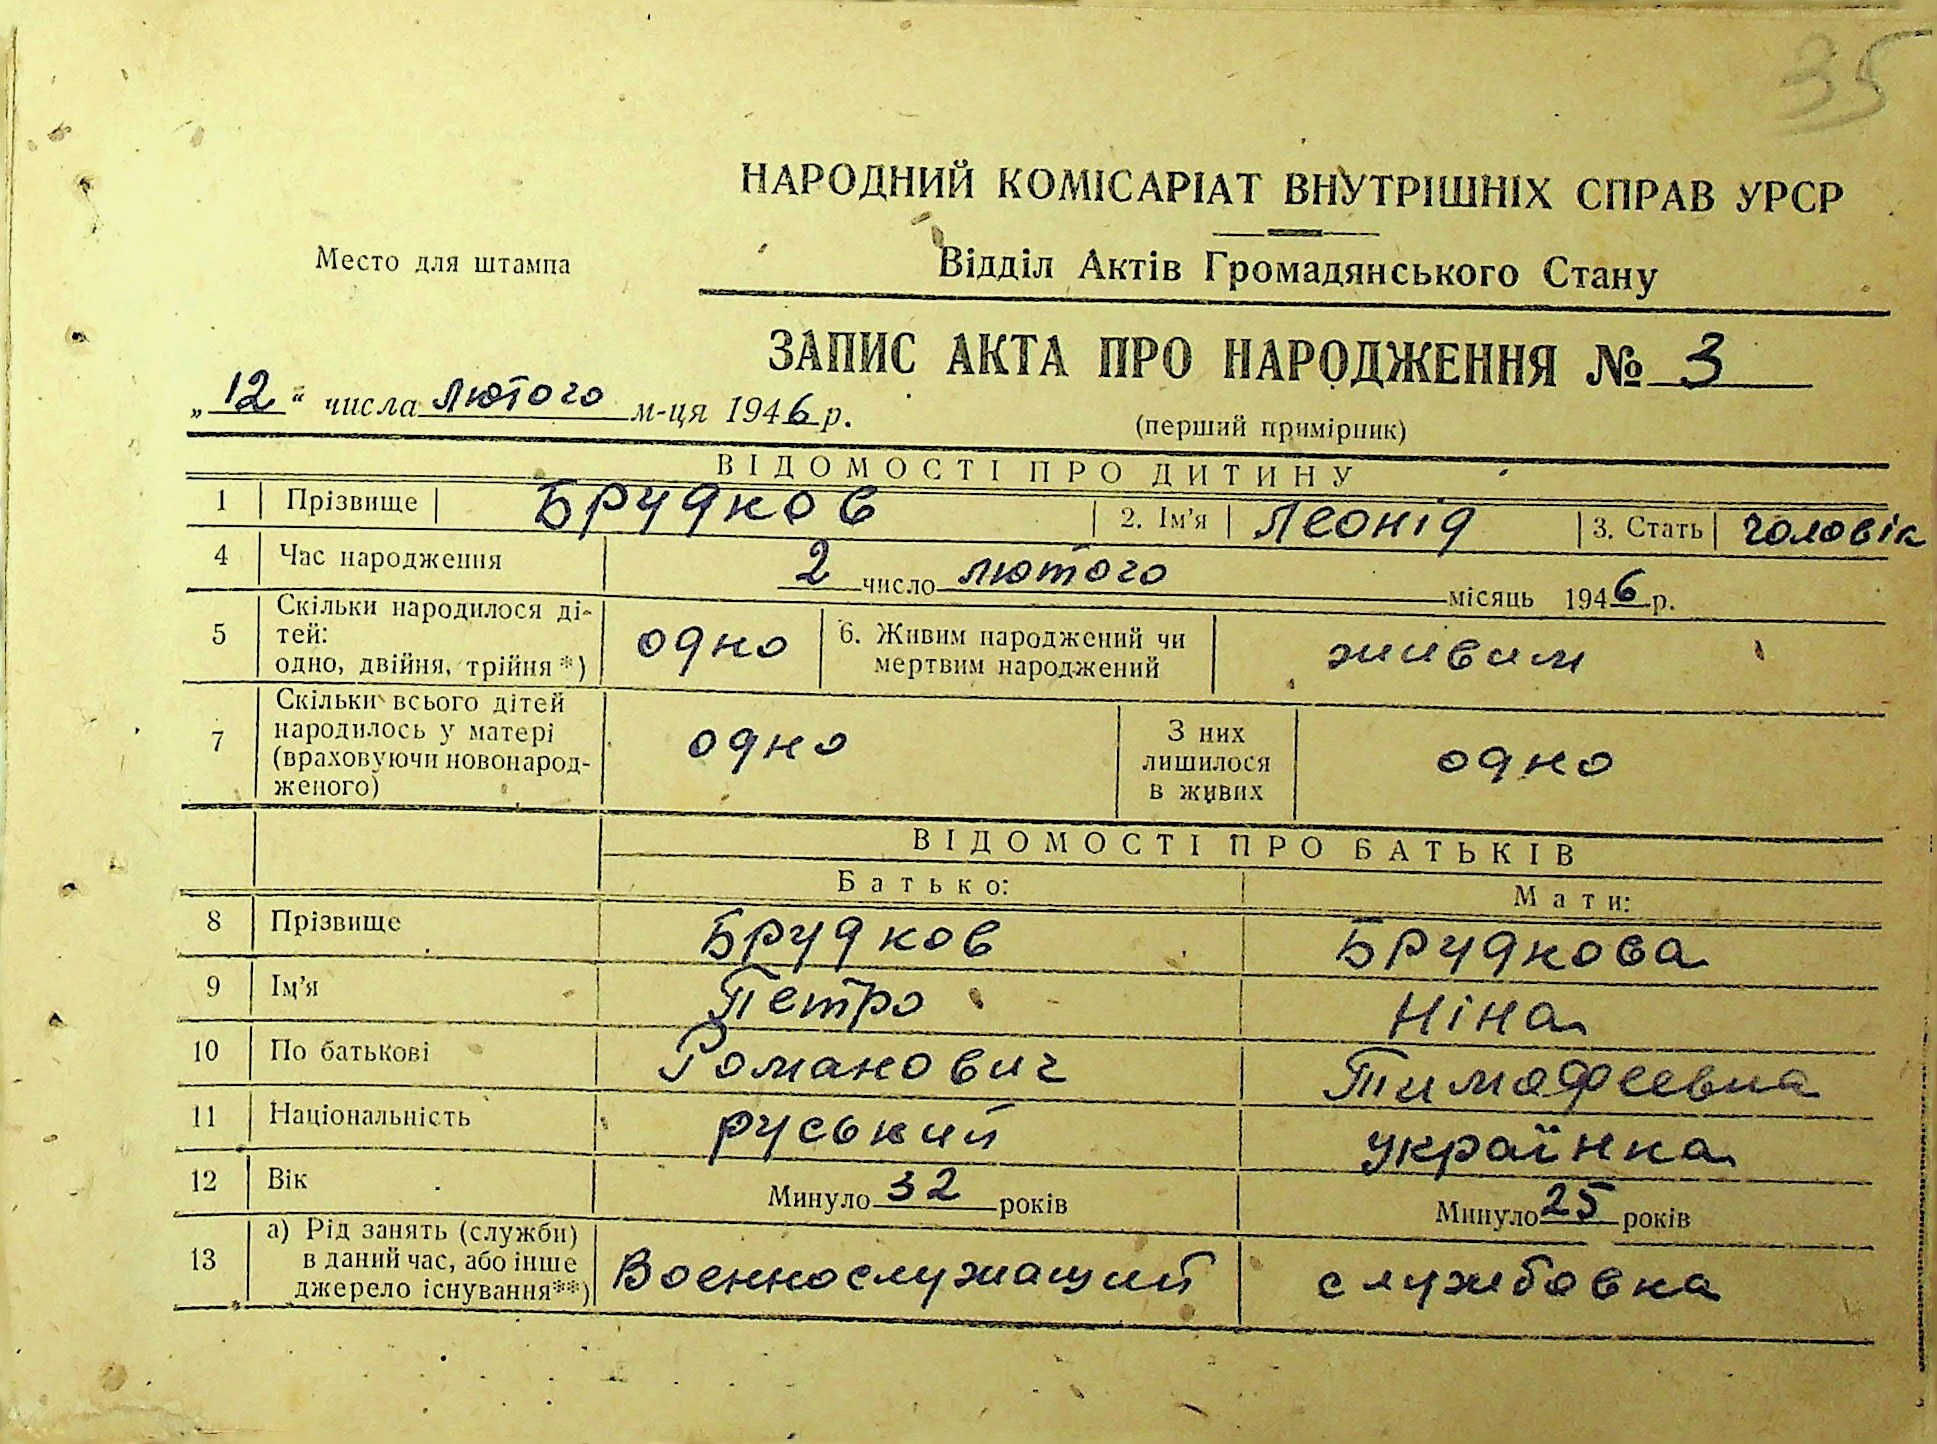 35
НАРОДНИЙ КОМІСАРІАТ ВНУТРІШНІХ СПРАВ УРСР
Место для штампа
Відділ Актів Громадянського Стану
ЗАПИС АКТА ПРО НАРОДЖЕННЯ № 3
„12“ числа лютого м-ця 1946 р.
(перший примірник)
ВІДОМОСТІ ПРО ДИТИНУ
1 Прізвище Брудков 2. Ім'я Леонід 3. Стать чоловік
4 Час народження 2 число лютого місяць 1946 р.
5 Скільки народилося ді-
тей:
одно, двійня, трійня *) одно 6. Живим народжений чи
мертвим народжений живим
7 Скільки всього дітей
народилось у матері
(враховуючи новонарод-
женого) одно З них
лишилося
в живих одно
ВІДОМОСТІ ПРО БАТЬКІВ
Батько: Мати:
8 Прізвище Брудков Брудкова
9 Ім'я Петро Ніна
10 По батькові Романович Тимофеевна
11 Національність руський українка
12 Вік Минуло 32 років Минуло 25 років
13 а) Рід занять (служби)
в даний час, або інше
джерело існування**) Военнослужащий службовка